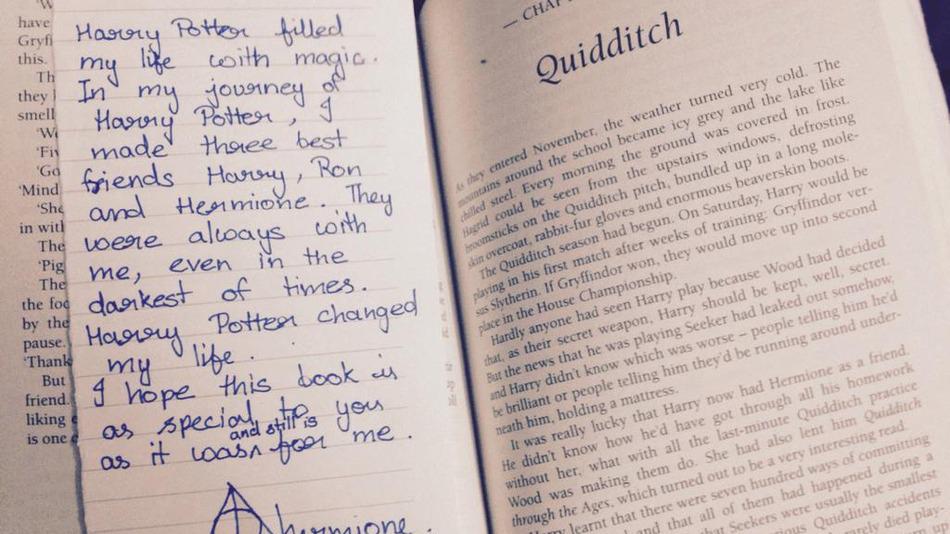 'W
have
Gryff
this.
Th
they
smell
'W
'Fiv
'Go
'Mind
'She
in with
The
'Pig
The
the foo
by the
pause.
'Thank
But
friend.
liking
is one
Harry Potter filled
my life with magic.
In my journey of
Harry Potter, I
made three best
friends Harry, Ron
and Hermione. They
were always with
me, even in the
darkest of times.
Harry Potter changed
my life.
I hope this book is
as special to you
and still is
as it was for me.
hermione.
— CHAP
Quidditch
As they entered November, the weather turned very cold. The
mountains around the school became icy grey and the lake like
chilled steel. Every morning the ground was covered in frost.
Hagrid could be seen from the upstairs windows, defrosting
broomsticks on the Quidditch pitch, bundled up in a long mole-
skin overcoat, rabbit-fur gloves and enormous beaverskin boots.
The Quidditch season had begun. On Saturday, Harry would be
playing in his first match after weeks of training: Gryffindor ver-
sus Slytherin. If Gryffindor won, they would move up into second
place in the House Championship.
Hardly anyone had seen Harry play because Wood had decided
that, as their secret weapon, Harry should be kept, well, secret.
But the news that he was playing Seeker had leaked out somehow,
and Harry didn't know which was worse – people telling him he'd
be brilliant or people telling him they'd be running around under-
neath him, holding a mattress.
It was really lucky that Harry now had Hermione as a friend.
He didn't know how he'd have got through all his homework
without her, what with all the last-minute Quidditch practice
Wood was making them do. She had also lent him Quidditch
through the Ages, which turned out to be a very interesting read.
Harry learnt that there were seven hundred ways of committing
and that all of them had happened during a
that Seekers were usually the smallest
Quidditch accidents
died play-